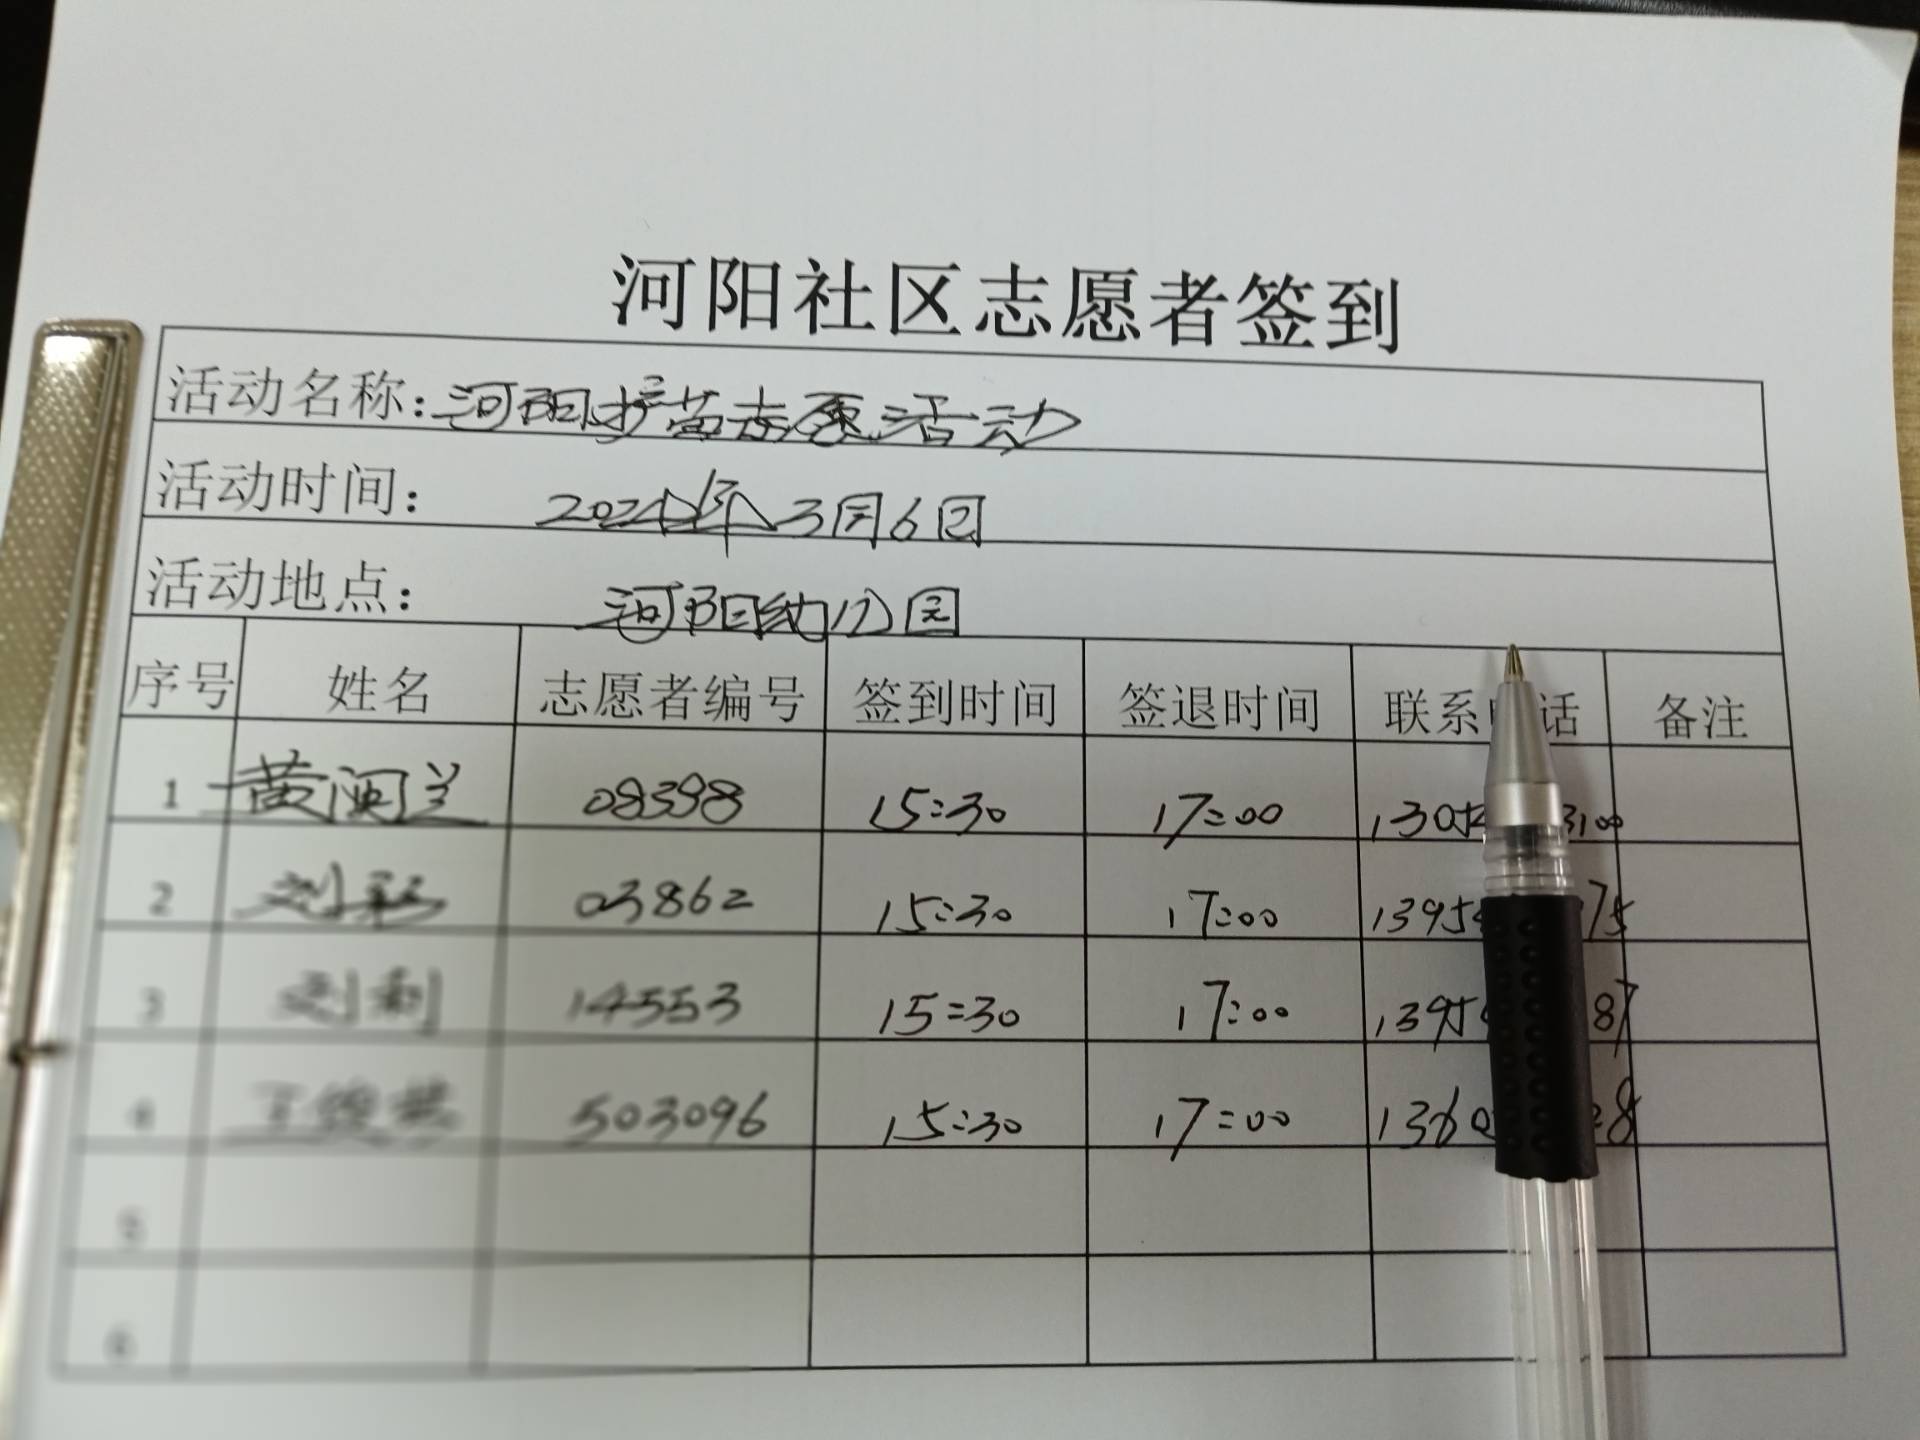 河阳社区志愿者签到
活动名称：河阳护苗志愿活动
活动时间： 3月6日
活动地点： 河阳幼儿园
序号 姓名 志愿者编号 签到时间 签退时间 联系 话 备注
1 黄闽兰 08398 15:30 17:00 130 3100
2 刘彩 03862 15:30 17:00 1395 75
3 刘利 14553 15:30 17:00 1395 87
4 503096 15:30 17:00 1360 8
5
6